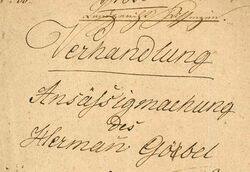 Verhandlung
Ansässigmachung
des
Herman Goebel